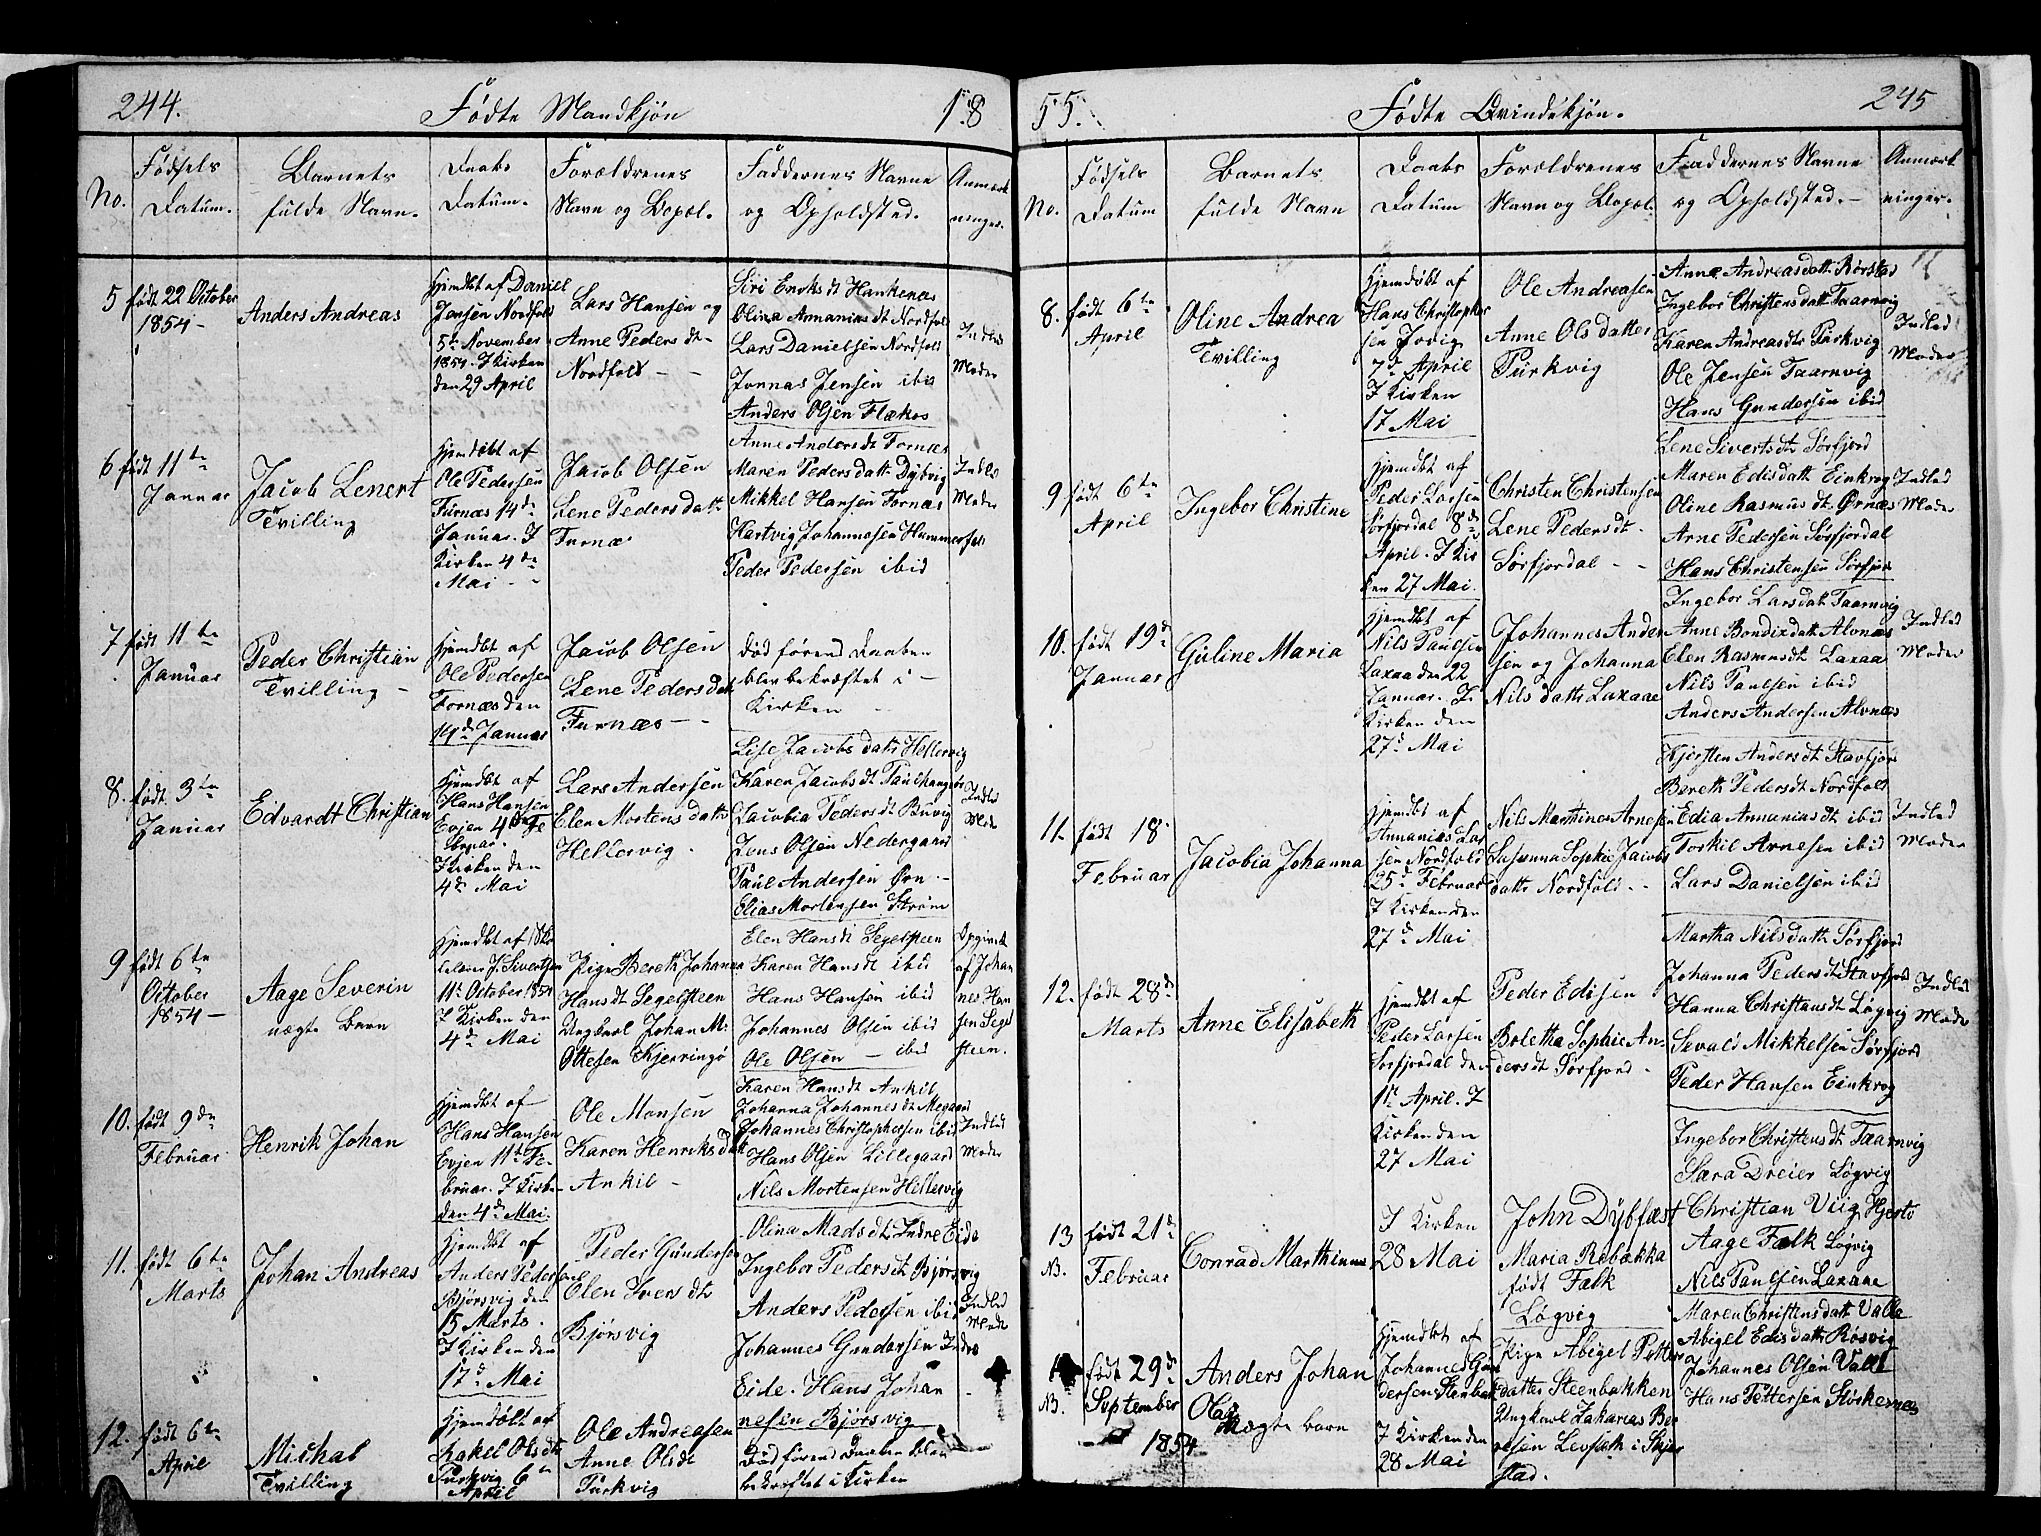 244.
Fødte Mandkjøn
18
No.
Fødsels Datum.
Barnets fulde Navn.
Daabs Datum.
Forældrenes Navn og Bopæl.
Faddernes Navne og Opholdsted.
Anmærkninger.
5
født 22 October
1854 -
Anders Andreas
Hjemdbt af Daniel
Jensen Nordfold
5te November
1854. I Kirken
den 29 April
Lars Hansen og
Anne Pedersdt
Nordfold - -
Siri Enoksdt Hankenæs
Olina Annaniasdt Nordfold
Lars Danielsen Nordfold
Jonnas Jensen ibid
Anders Olsen Flækos
Indled
Moder
6
født 11te
Januar
Jacob Lenert
Tvilling
Hjemdøbt af
Ole Pedersen
Furnæs 14de
Januar. I
Kirken 4de
Mai - -
Jacob Olsen
Lene Pedersdatt
Furnæ
Anne Andersdt Fornæs
Maren Pedersdatt Dybvig
Mikkel Hansen Fornæs
Hartvig Johannesen Hammerfæl
Peder Pedersen ibid
Indled
Moder
7
født 11te
Januar
Peder Christian
Tvilling -
Hjemdbt af
Ole Pedersen
Fornæs den
14de Januar
Jacob Olsen
Lene Pedersdatt
Furnæs - -
død førend Daaben
blev bekræftet i -
Kirken -
8.
født 3te
Januar
Edvardt Christian
Hjemdbt af
Hans Hansen
Evjen 4de Fe
bruar.
I Kirken den
4de Mai
Lars Andersen
Elen Mortensdatt
Hellervig.
Lise Jacobsdatt Hellervig
Karen Jacobsdt
Jacobia Pedersdt Buvig
Jens Olsen Nedergaard
Paul Andersen Ørn -
Elias Mortensen Strøm
Indled
Mode
9
født 6te
October
1854 -
Aage Severin
uægte Barn
Hjemdbt af Sko
lelærer J. Sivertsen
11te October 1854
I Kirken den
4de Mai
Pige Bereth Johanna
Hansdt Segelsteen
Ungkarl Johan M.
Ottesen Kjerringø
Elen Hansdt Segelsteen
Karen Hansdt ibid
Hans Hansen ibid
Johannes Olsen ibid
Ole Olsen - ibid
Opgivet
af Johan
nes Han
sen Segel
steen.
10.
født 9de
Februar
Henrik Johan
Hjemdbt af
Hans Hansen
Evjen 11te Fe-
bruar. I Kirke-
den 4de Mai.
Ole Monsen
Karen Henriksdatt
Ankil -
Karen Hansdt Ankil
Johanna Johannesdt Megaard
Johannes Christophersen ibid
Hans Olsen Lillegaard
Nils Mortensen Hellervig
Indled
Moder
11.
født 6te
Marts
Johan Andreas
Hjemdbt af
Anders Pedersen
Bjørsvig den
15 Marts.
I Kirken den
17de Mai
Peder Gundersen
Olen Iversdt
Bjørsvig
Olina Madsdt Indre Eide
Ingebor Pedersdt Bjørsvig
Anders Pedersen ibid
Johannes Gundersen Indre
Eide. Hans Johan
nesen Bjørsvig
Indled
Mode
12.
født 6te
April
Michal
Tvilling
Hjemdøbt af
Rakel Olsdt
Purkvig 6te
April
Ole Andreasen
Anne Olsdt
Purkvig
Død førend Daaben blev
bekræftet i Kirken
55.
Fødte Qvindekjøn.
245
No.
Fødsels Datum
Barnets fulde Navn
Daabs Datum
Forældrenes Navn og Bopæl.
Faddernes Navne og Opholdsted. -
Anmærkninger.
8.
født 6te
April
Oline Andrea
Tvilling
Hjemdøbt af
Hans Christopher
sen Jovig
7de April
I Kirken
17 Mai
Ole Andreasen
Anne Olsdatter
Purkvig
Anne Andreasdatt Rørstad
Ingebor Christensdatt Taarnvig
Karen Andreasdtr Purkvig
Ole Jensen Taarnvig
Hans Gundersen ibid
Indled
Moder
9
født 6te
April
Ingebor Christine
Hjemdbt af
Peder Larsen
Sørfjordal 8de
April. I Kir
ken 27 Mai.
Christen Christensen
Lene Pedersdt.
Sørfjordal - -
Lene Sivertsdt Sørfjord
Maren Edisdatt Einkrog
Oline Rasmusdt Ørnæs
Arne Pedersen Sørfjordal
Hans Christensen Sørfjor
Indled
Moder
10.
født 19de
Januar
Guline Maria
Hjemdbt af
Nils Paulsen
Laxaa den 22
Januar. I
Kirken den
27de Mai
Johannes Ander
sen og Johanna
Nilsdatter Laxaae
Ingebor Larsdatt Taarnvig
Anne Bondixdatt Alvnæs
Elen Rasmusdt Laxaa
Nils Paulsen ibid
Anders Andersen Alvnæs
Indled
Moder
11.
født 18
Februar
Jacobia Johanna
Hjemdbt af
Annanias Lar
sen Nordfold
25de Februar
I Kirken den
27de Mai
Nils Martines Arnesen
Susanna Sophie Jacobs
datter Nordfold - -
Kjersten Andersdt Stavfjor
Bereth Pedersdt Nordfold
Edia Annaniasdt ibid
Torkil Arnesen ibid
Lars Danielsen ibid
Indled
Moder
12.
født 28de
Marts
Anne Elisabeth
Hjemdbt af
Peder Larsen
Sørfjordal den
11te April. I
Kirken den
27 Mai
Peder Edisen
Beletha Sophie An-
dersdt Sørfjord -
Martha Nilsdatt Sørfjord
Johanna Pedersdt Stavfjord
Hanna Christiansdt Løgvig
Sevald Mikkelsen Sørfjord
Peder Hansen Einkrog
Indled
Moder
13
NB.
født 21de
Februar
Conrad Marthinus
I Kirken
28 Mai
John Dybfæst
Maria Rebækka
født Falk
Løgvig
Ingebor Christensdt Taarnvig
Sara Dreier Løgvig
Christian Viig Hjertø
Aage Falk Løgvig
Nils Paulsen Laxaae
NB.
født 29de
September
1854
Anders Johan
Olai
uægte barn
Hjemdbt af
Johannes Gun
dersen Stenbak
I Kirken den
28 Mai
Pige Abigel Petters
datter Steenbakken
Ungkarl Zakarias Ber
gesen Levsæth i Skjer
stad.
Maren Christensdatt Valle
Abigel Edisdatt Røsvig
Johannes Olsen Valle
Hans Pettersen Storkernæs